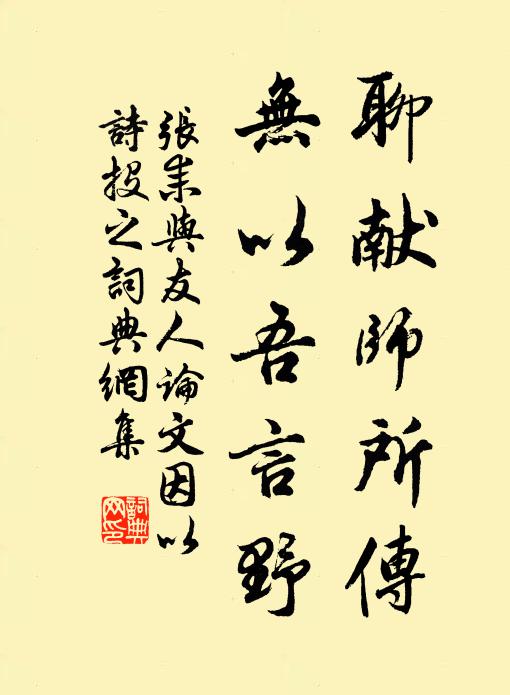 聊献師所傳
無以吾言野
張耒與友人論文因以
詩投之詞典網集
詞典
网印